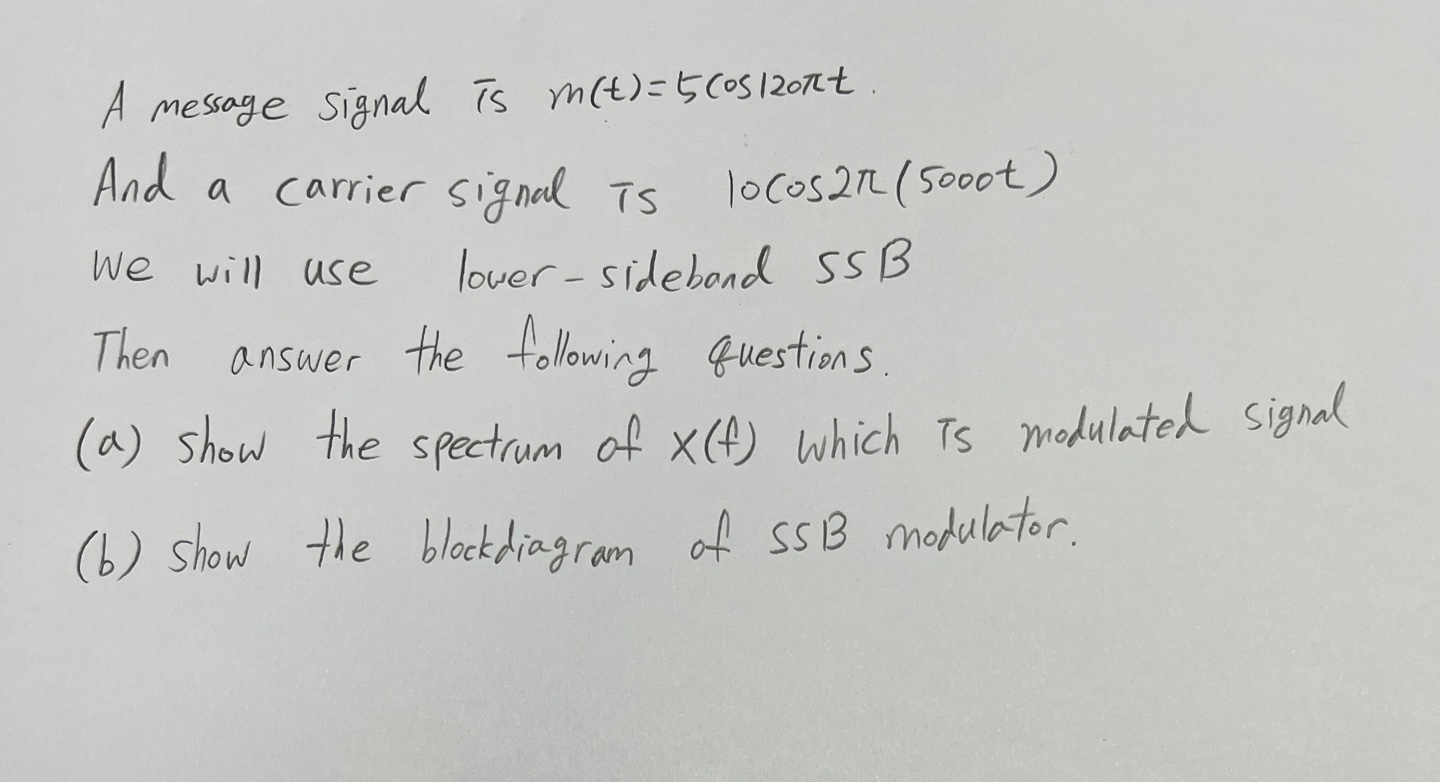 A message signal is m(t)=5cos120πt.
And a carrier signal is 10cos2π(5000t)
We will use lower-sideband SSB
Then answer the following questions.
(a) show the spectrum of X(f) which is modulated signal
(b) show the blockdiagram of SSB modulator.